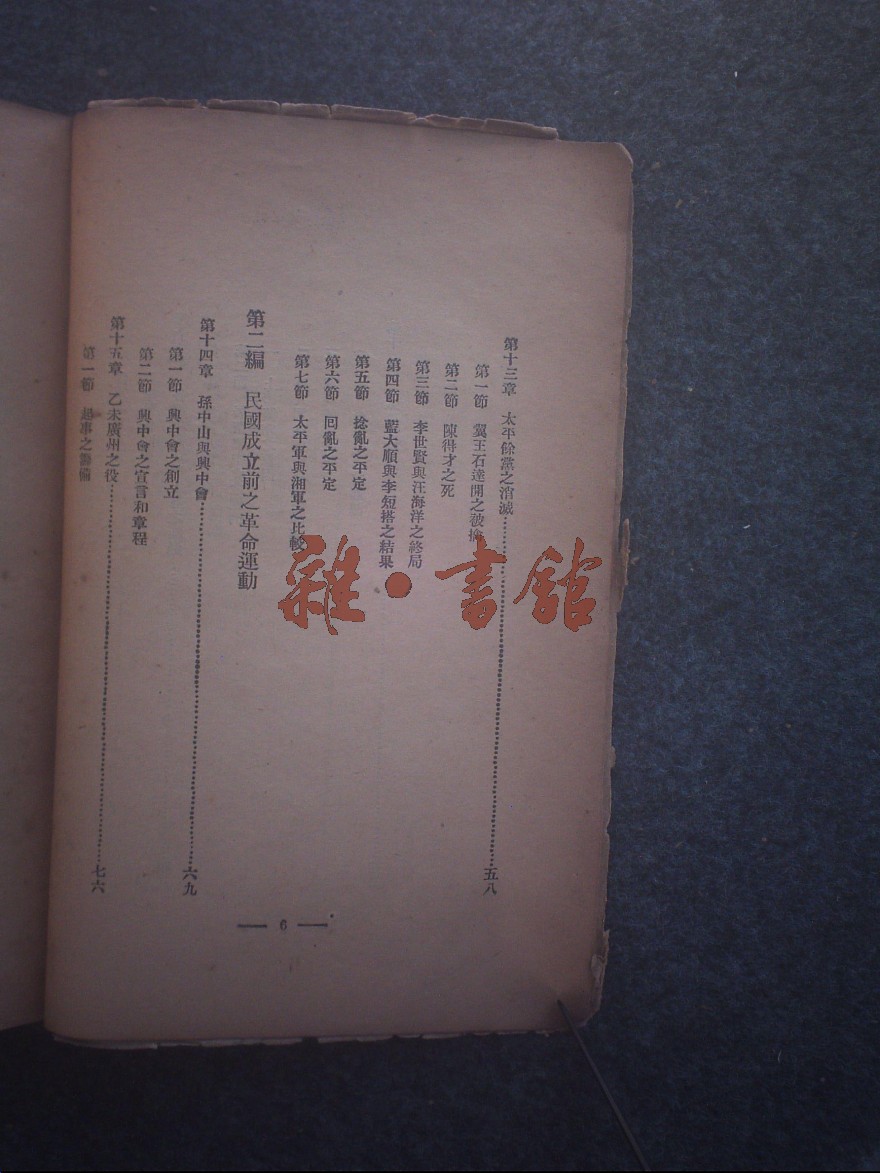 第十三章 太平餘黨之消滅……五八
第一節 翼王石達開之被擒
第二節 陳得才之死
第三節 李世賢與汪海洋之終局
第四節 藍大順與李短搭之結果
第五節 捻亂之平定
第六節 回亂之平定
第七節 太平軍與湘軍之比較
第二編 民國成立前之革命運動
第十四章 孫中山與興中會……六九
第一節 興中會之創立
第二節 興中會之宣言和章程
第十五章 乙未廣州之役……七六
第一節 起事之籌備
— 6 —
雜·書館